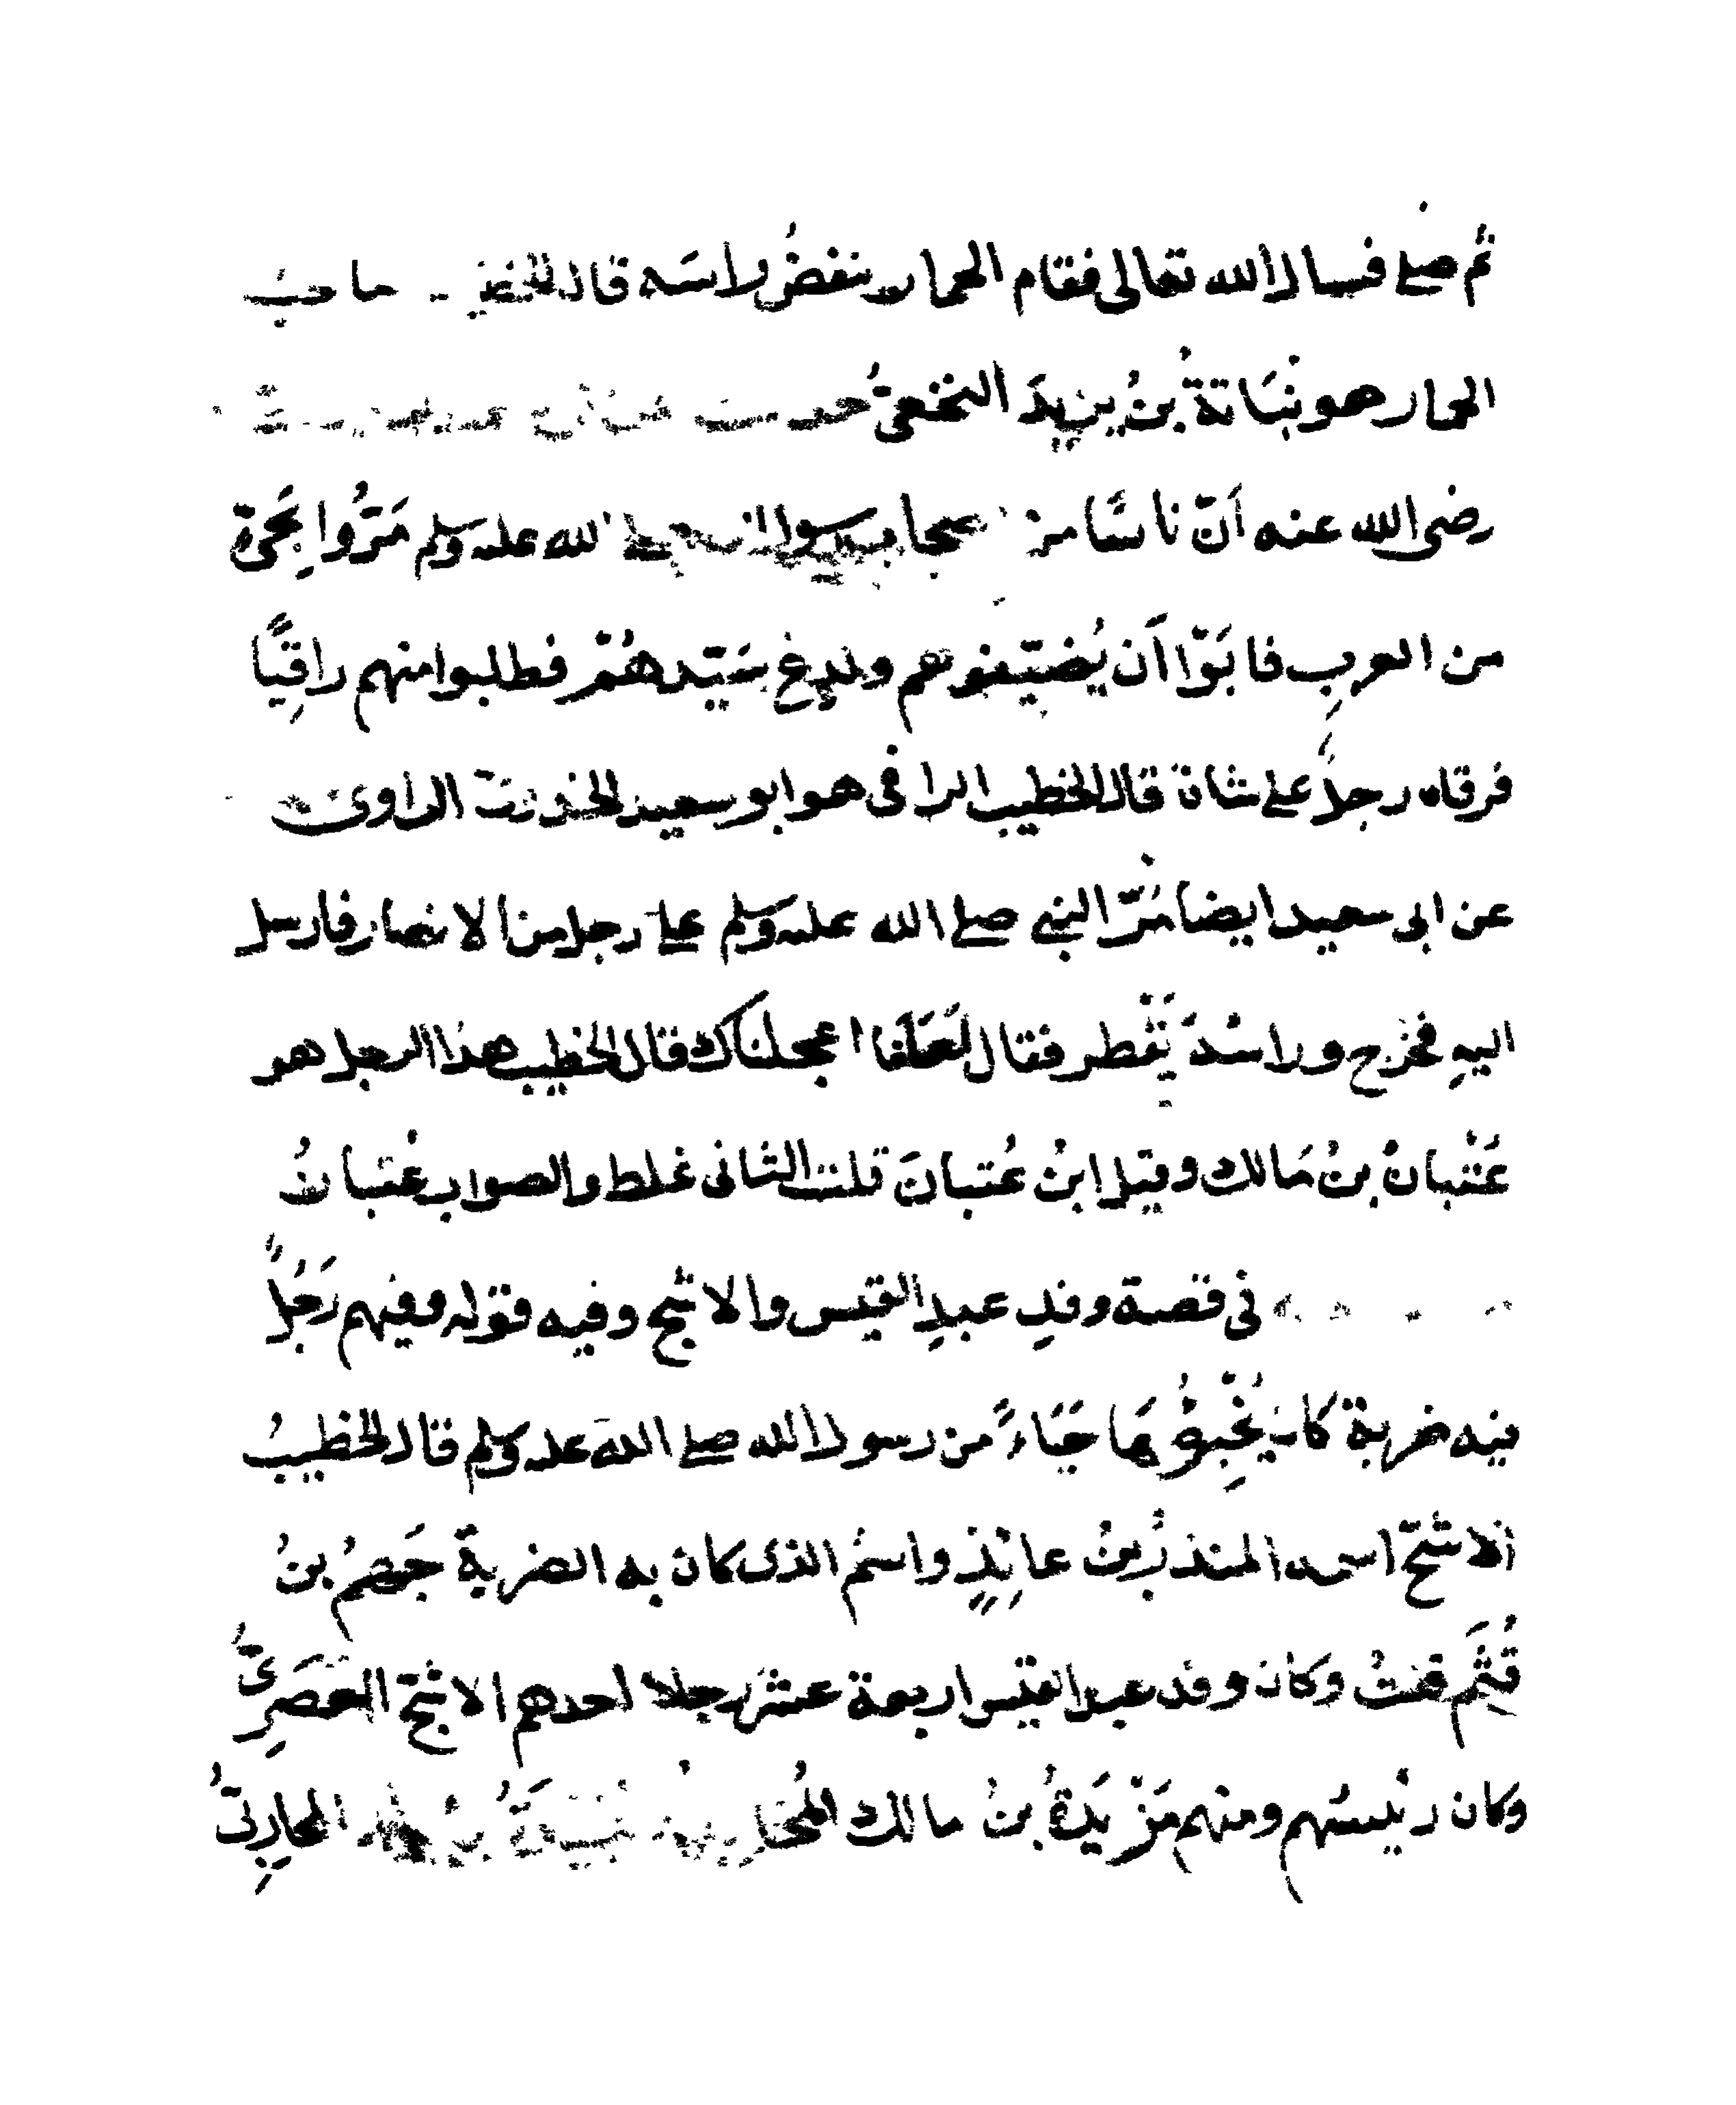 ثم صلى فسال الله تعالى فقام الحمار ينفضُ راسَه قال الخطيب صاحبُ
الحمار هو نُبَاتةُ بنُ يزيدَ النخعىُّ حديث
رضى الله عنه اَنّ ناسًا من اصحاب رسول الله صلى الله عليه وسلم مَرُّوا بِحَىّ
من العربِ فابَوْا اَن يُضيّفوهم ولُدِغ سَيّدهُمْ فطلبوا منهم راقِيًا
فرقاه رجلٌ على شاة قال الخطيب الراقى هو ابو سعيد الخدرى الراوى
عن ابى سعيد ايضا مَرّ النبى صلى الله عليه وسلم على رجل من الانصار فارسل
اليهِ فخرج وراسُهُ يَقْطر فقال لَعَلَّنا اعجلناك قال الخطيب هذا الرجل هو
عِتْبانُ بنُ مَالك وقيل ابنُ عُتبانَ قلت الثانى غلط والصواب عِتبانُ
فى قصة وفدِ عبدِ القيس والاشج وفيه قوله وفيهم رَجُلٌ
فيه ضربة كان يُخْبِئُهَا حَيَاءً من رسول الله صلى الله عليه وسلم قال الخطيبُ
الاشجّ اسمه المنذرُ بنُ عائِذٍ واسمُ الذى كان به الضربةُ جَهمُ بنُ
قُثَمَ قلتُ وكان وفد عبد القيس اربعة عشَرَ رجلا احدهم الاشجّ العَصَرِىُّ
وكان رئيسَهم ومنهم مَزْيَدةُ بنُ مالك المُحاربىُّ عُبَيدَةُ بنُ المحارِبىُّ